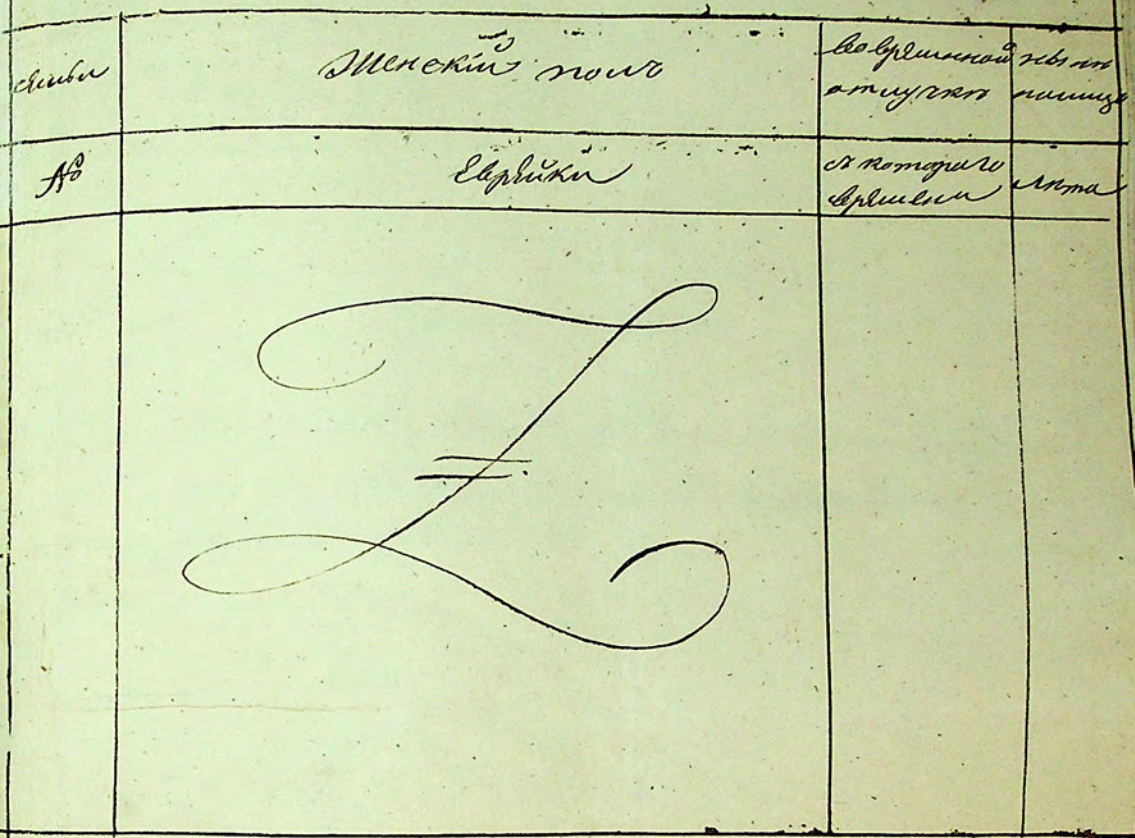 семьи
Женскій полъ
во временной
отлучкѣ
нынѣ
на лицо
№
Еврейки
съ котораго
времени
лѣта